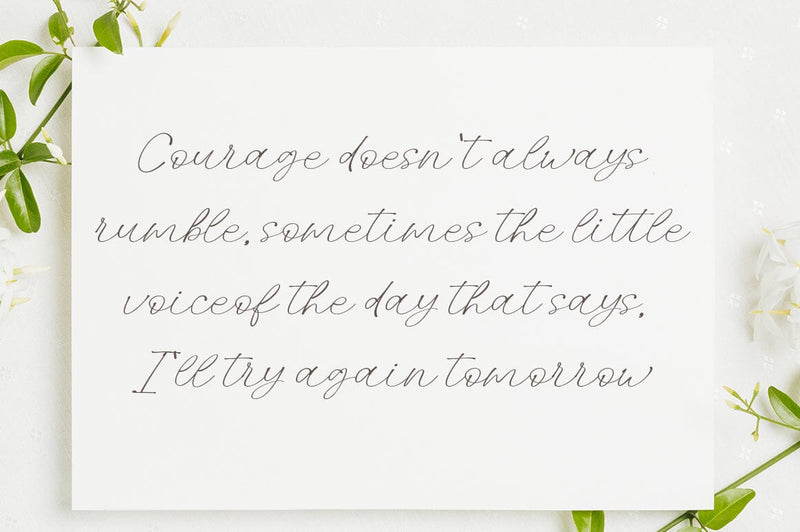 Courage doesn't always
rumble, sometimes the little
voiceof the day that says,
I'll try again tomorrow